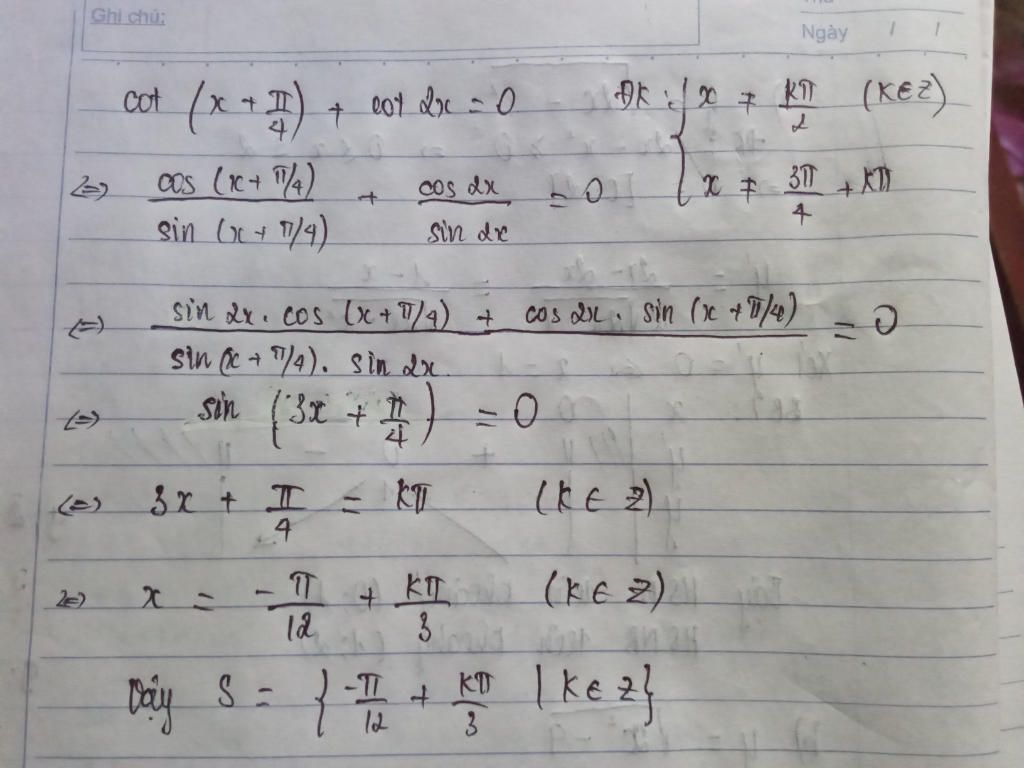 Ghi chú:
Ngày / /
cot (x + π/4) + cot 2x = 0 ĐK: { x ≠ kπ/2 (k ∈ Z)
x ≠ 3π/4 + kπ
<=> cos (x + π/4) / sin (x + π/4) + cos 2x / sin 2x = 0
<=> sin 2x . cos (x + π/4) + cos 2x . sin (x + π/4) / sin (x + π/4) . sin 2x = 0
<=> sin (3x + π/4) = 0
<=> 3x + π/4 = kπ (k ∈ Z)
<=> x = -π/12 + kπ/3 (k ∈ Z)
Vậy S = { -π/12 + kπ/3 | k ∈ Z }